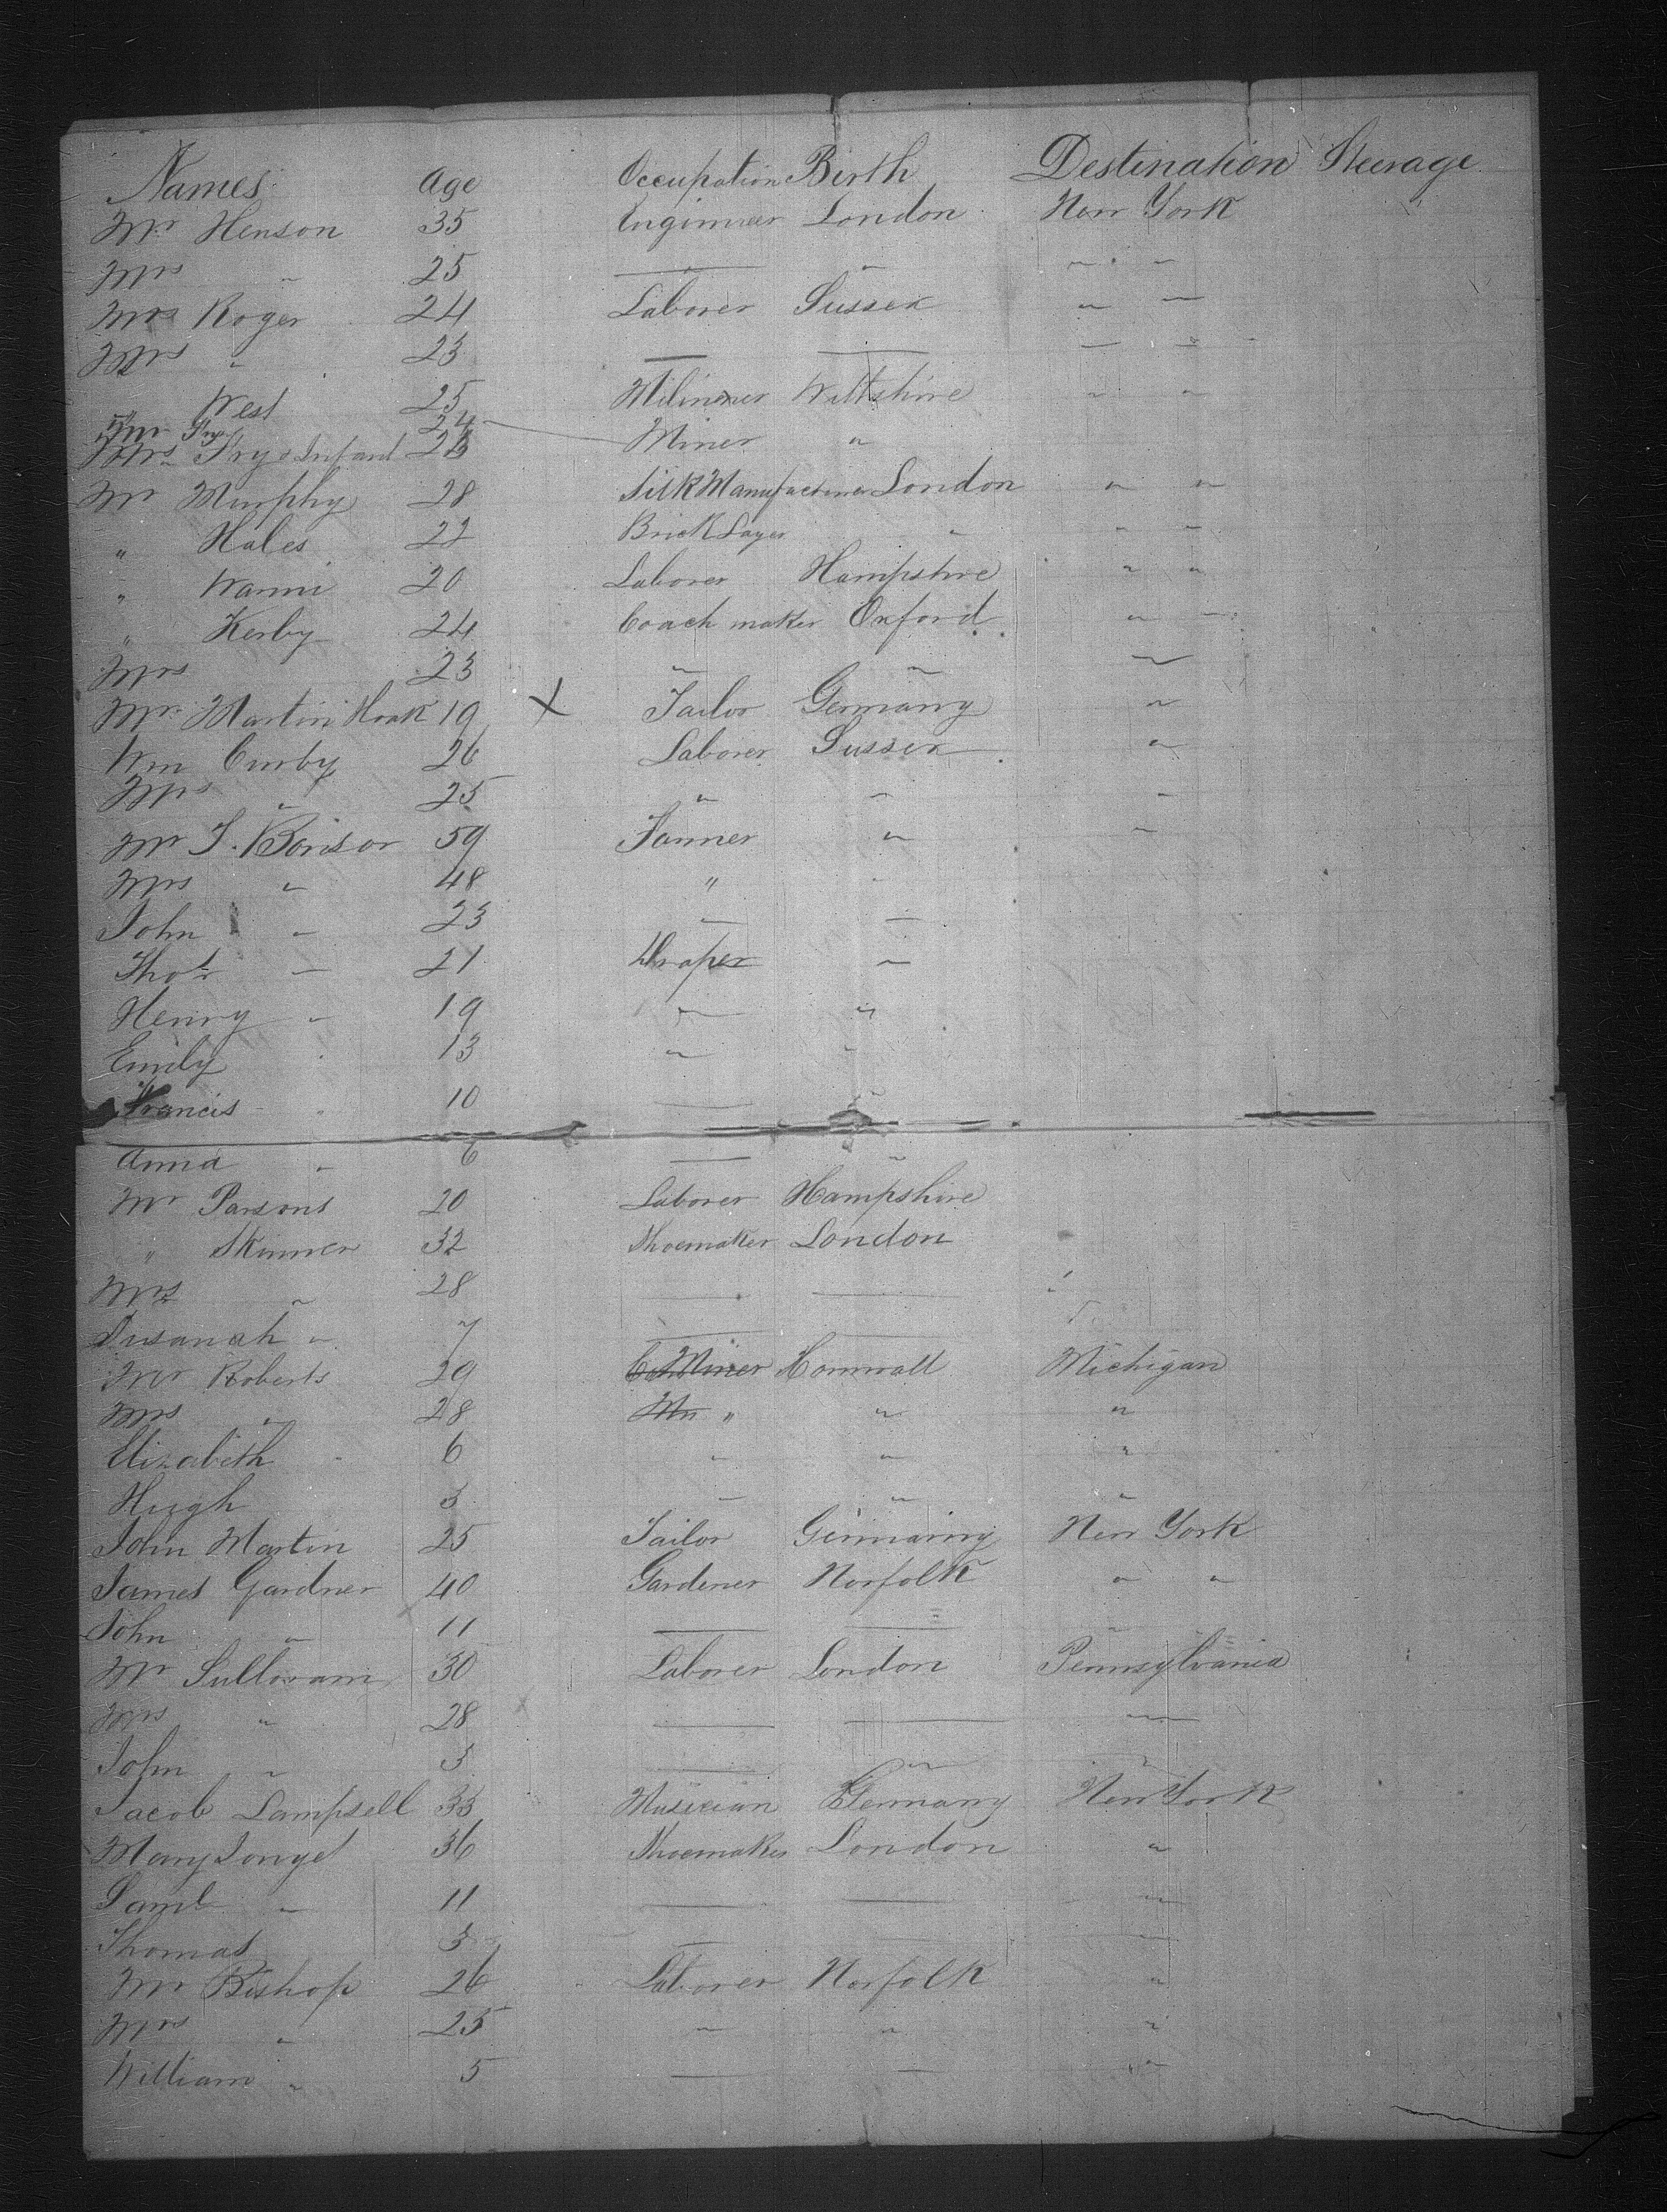 Names Age Occupation Birth Destination Steerage
Mr Henson 35 Engineer London New York
Mrs " 25 — " " "
Mr Roger 24 Laborer Sussex " "
Mrs " 23 — — — "
West 25 Miliner Wiltshire " "
Mr Fry 24 Miner "
Mrs Fry & Infant 23
Mr Murphy 28 Silk Manufacturer London " "
" Hales 22 Brick Layer " " "
" 20 Laborer Hampshire " "
" Kerby 24 Coach maker Oxford " "
Mrs 23 " " "
Mr Martin 19 X Tailor Germany "
Wm Curby 26 Laborer Sussex "
Mrs " 25 " " "
Mr J. 59 "  "
Mrs " 48 " "
John " 23 — —
Thos " 21 Draper "
Henry " 19 " "
Emily 13 " "
Francis " 10 — "
Anna " 6 — "
Mr Parsons 20 Laborer Hampshire
" Skinner 32 Shoemaker London
Mrs " 28 — —
Susanah " 7 — —
Mr Roberts 29 Miner Cornwall Michigan
Mrs " 28 " " "
Elizabeth " 6 " " "
Hugh 3 " " "
John Martin 25 Tailor Germany New York
James Gardner 40 Gardener Norfolk " "
John " 11 — — "
Mr Sullovam 30 Laborer London Pennsylvania
Mrs " 28 — — "
John " 3 — " "
Jacob Lampsell 33 Musician Germany New York
Mary 36 Shoemaker London "
Saml " 11 — — "
Thomas 3 — — "
Mr Bishop 26 Laborer Norfolk "
Mrs " 25 " " "
William " 5 — — "